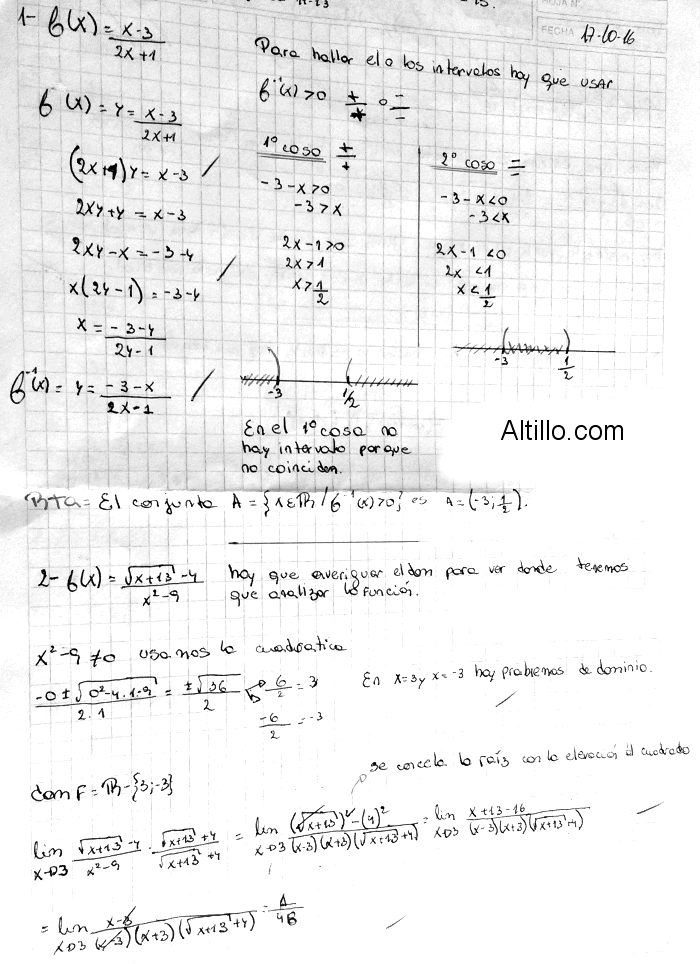 FECHA 17-10-16
1- f(x) = x-3 / 2x+1
Para hallar el o los intervalos hay que usar
f⁻¹(x) > 0 + / + o - / -
f(x) = y = x-3 / 2x+1
(2x+1)y = x-3
2xy+y = x-3
2xy-x = -3-y
x(2y-1) = -3-y
x = -3-y / 2y-1
f⁻¹(x) = y = -3-x / 2x-1
1º caso + / +
-3-x>0
-3>x
2x-1>0
2x>1
x>1/2
-3 1/2
En el 1º caso no
hay intervalo porque
no coinciden.
2º caso - / -
-3-x<0
-3<x
2x-1<0
2x <1
x<1/2
-3 1/2
Altillo.com
Rta = El conjunto A = {x∈ℝ / f⁻¹(x)>0} es A = (-3; 1/2).
2- f(x) = √x+13 -4 / x²-9
hay que averiguar el dom para ver donde tenemos
que analizar la función.
x²-9 ≠0 usamos la cuadratica
-0 ± √0²-4.1.-9 / 2.1 = ±√36 / 2 6/2 = 3
-6/2 = -3
En x=3 y x=-3 hay problemas de dominio.
Dom F = ℝ-{3;-3}
se cancela la raíz con la elevación al cuadrado
lim x→3 √x+13 -4 / x²-9 · √x+13 +4 / √x+13 +4 = lim x→3 (√x+13)² -(4)² / (x-3)(x+3)(√x+13 +4) = lim x→3 x+13-16 / (x-3)(x+3)(√x+13 +4)
= lim x→3 x-3 / (x-3)(x+3)(√x+13 +4) = 1/48